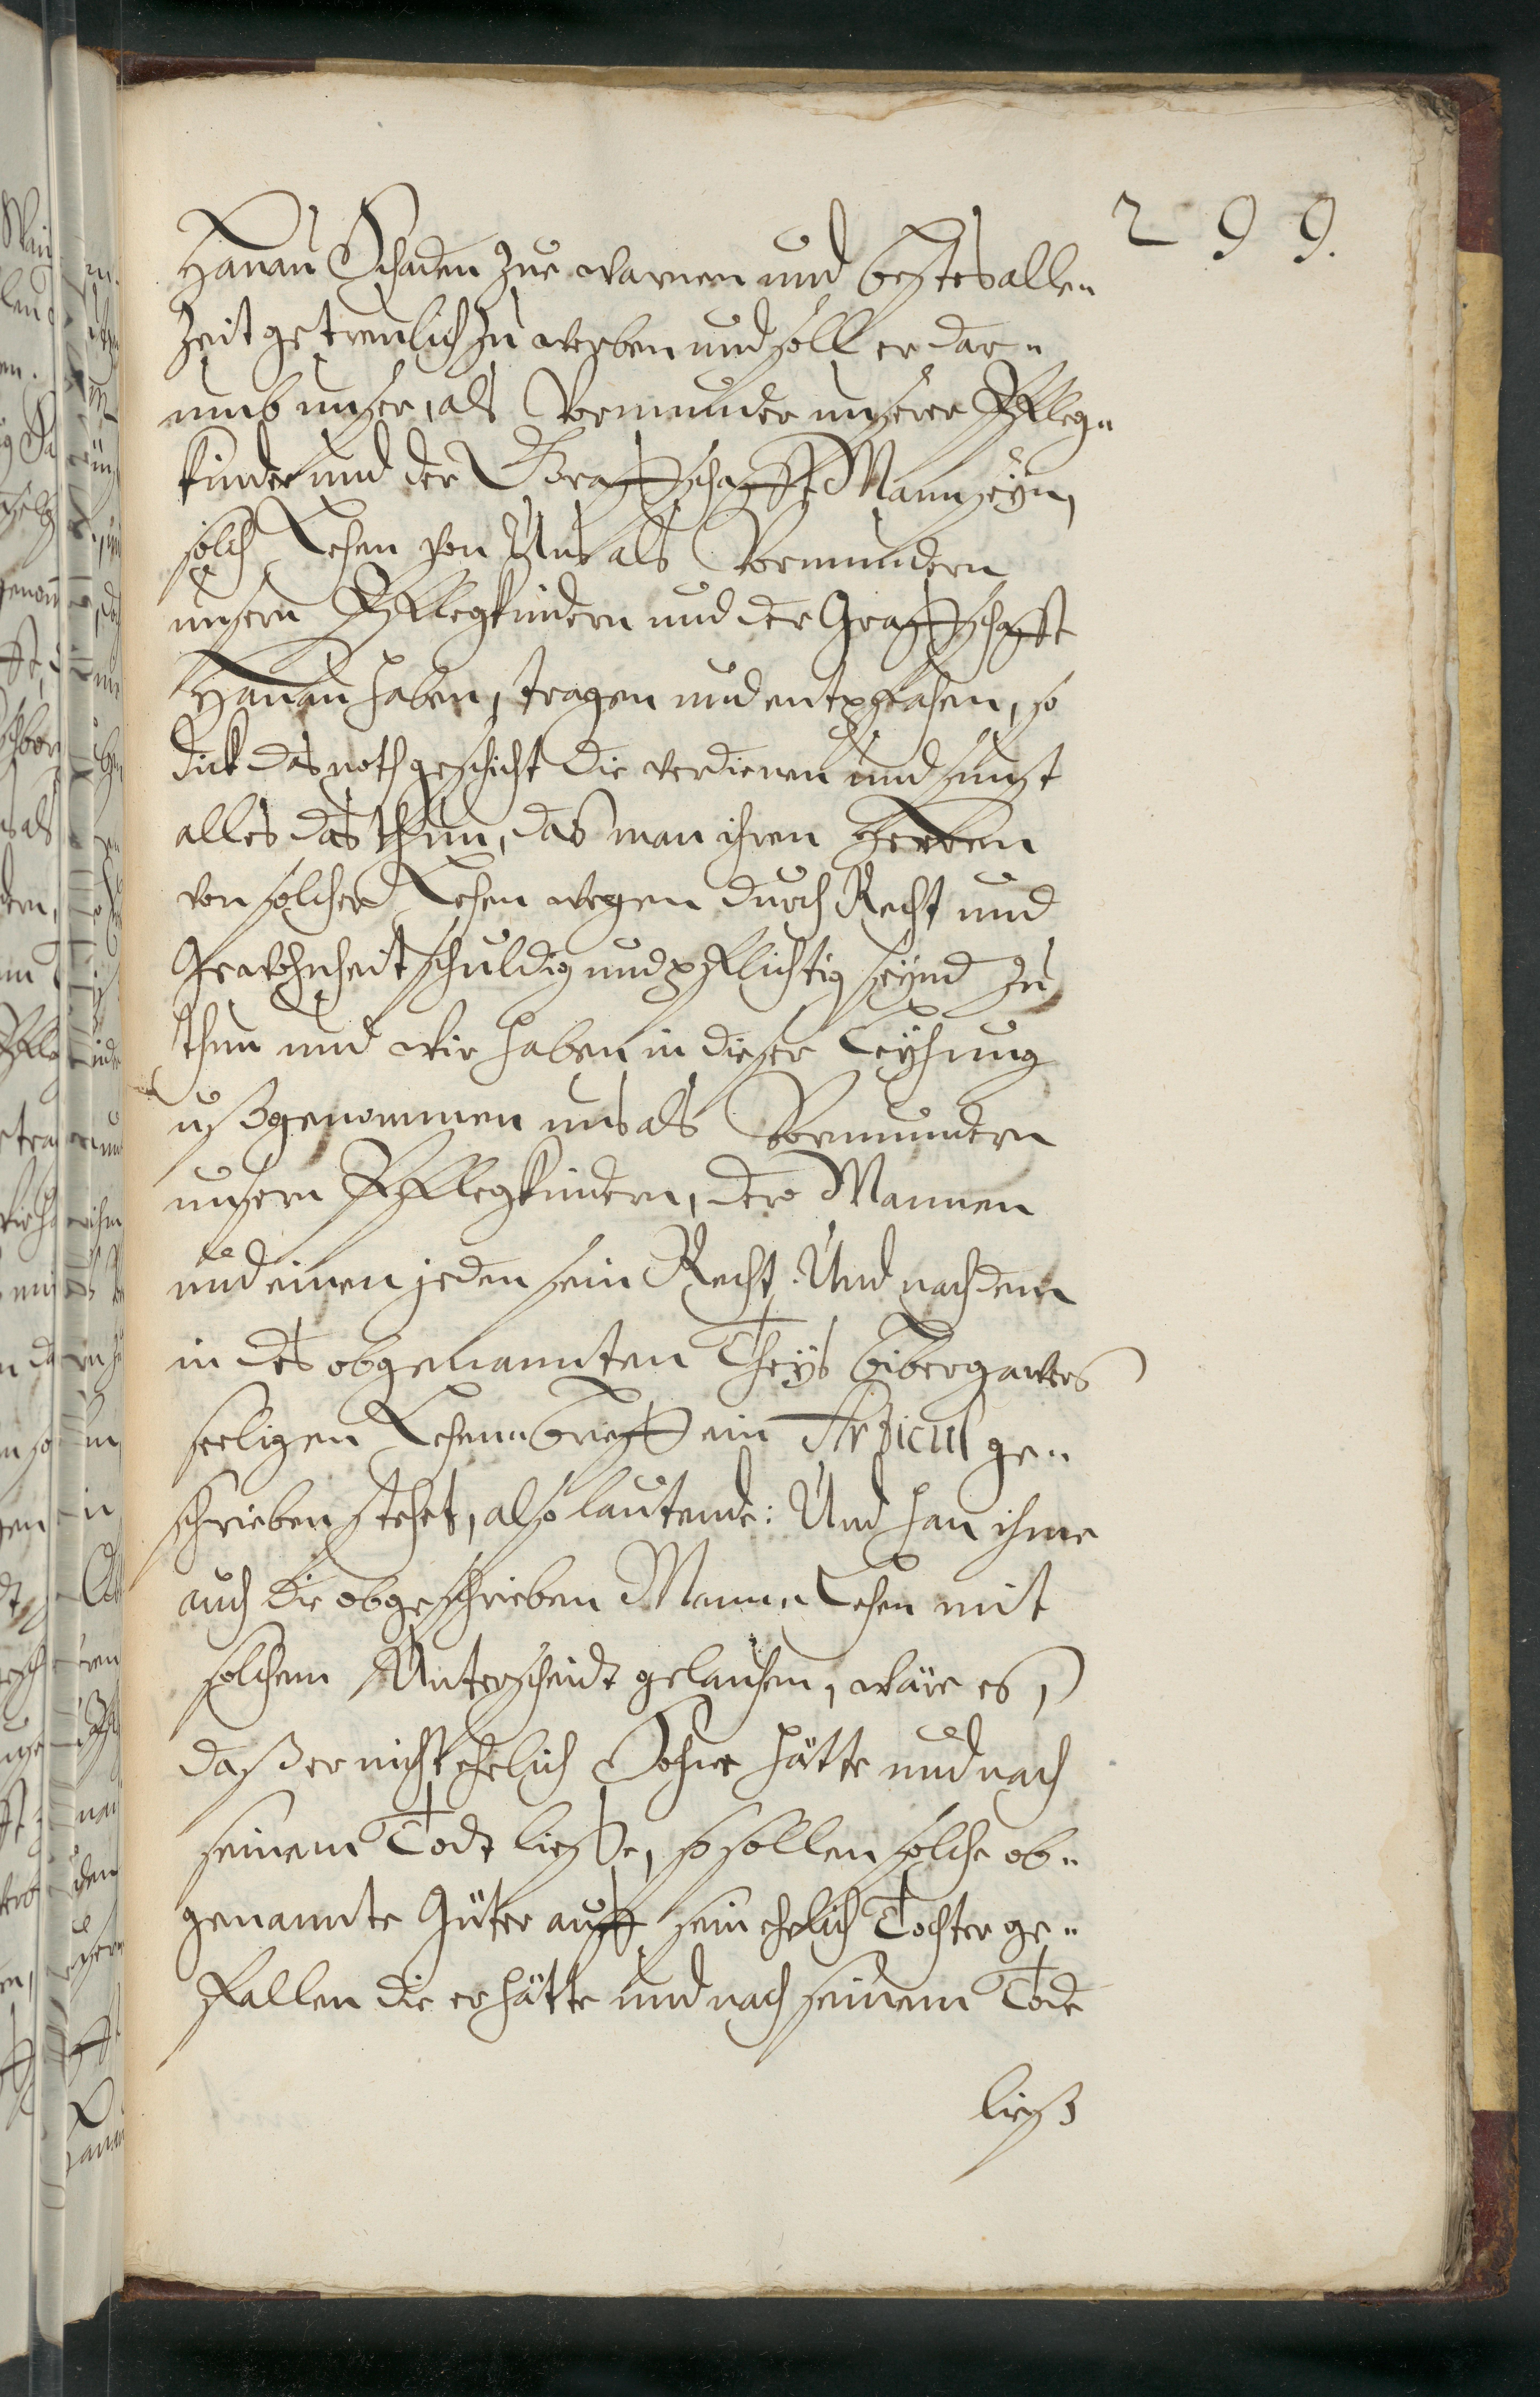 299.
Hanau Schaden zue warnen und bestes alle„
Zeit getreulich zu werben und soll er dar„
umb unser, als Vormunder unserer Pfleg„
kinder und der Graffschafft Mann seyn,
solch Lehen von Uns als Vormundern
unsern Pflegkindern und der Graffschafft
Hanau haben, tragen und entpfahen, so
dick das noth geschicht die verdienen und sunst
alles das thun, das man ihren Herren
von solcher Lehen wegen durch Recht und
Gewohnheit schuldig und pflichtig seynd zu
thun und wir haben in dieser Leyhung
ußgenommen uns als Vormundern
unsern Pflegkindern, der Mannen
und einen jeden sein Recht. Und nachdem
in des obgenannten Theys Bibergawes
seeligen Lehen„brieff ein Articul ge„
schrieben stehet, also lautende: Und han ihme
auch die obgeschrieben Mann„Lehen mit
solchem Unterscheidt gelauhen, wäre es,
daß er nicht ehelich Sohne hätte und nach
seinem Todt ließe, so sollen solche ob„
genannte Güter auff sein ehelich Tochter ge„
fallen die er hätte und nach seinem Tode
ließ